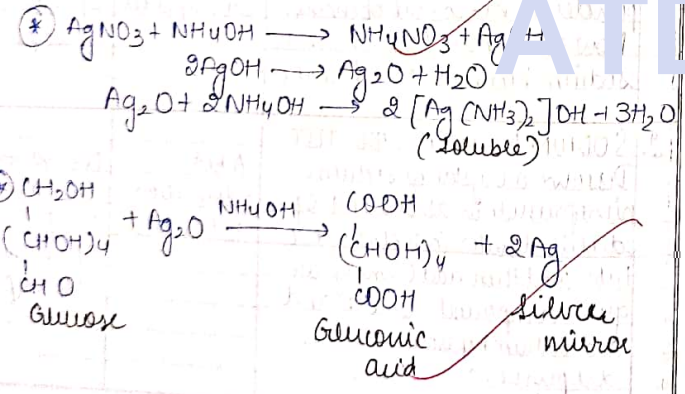 * AgNO3 + NH4OH → NH4NO3 + AgOH
2AgOH → Ag2O + H2O
Ag2O + 2NH4OH → 2[Ag(NH3)2]OH + 3H2O
(Soluble)
CH2OH COOH
(CHOH)4 + Ag2O NH4OH → (CHOH)4 + 2Ag
CHO COOH
Glucose Gluconic acid Silver mirror